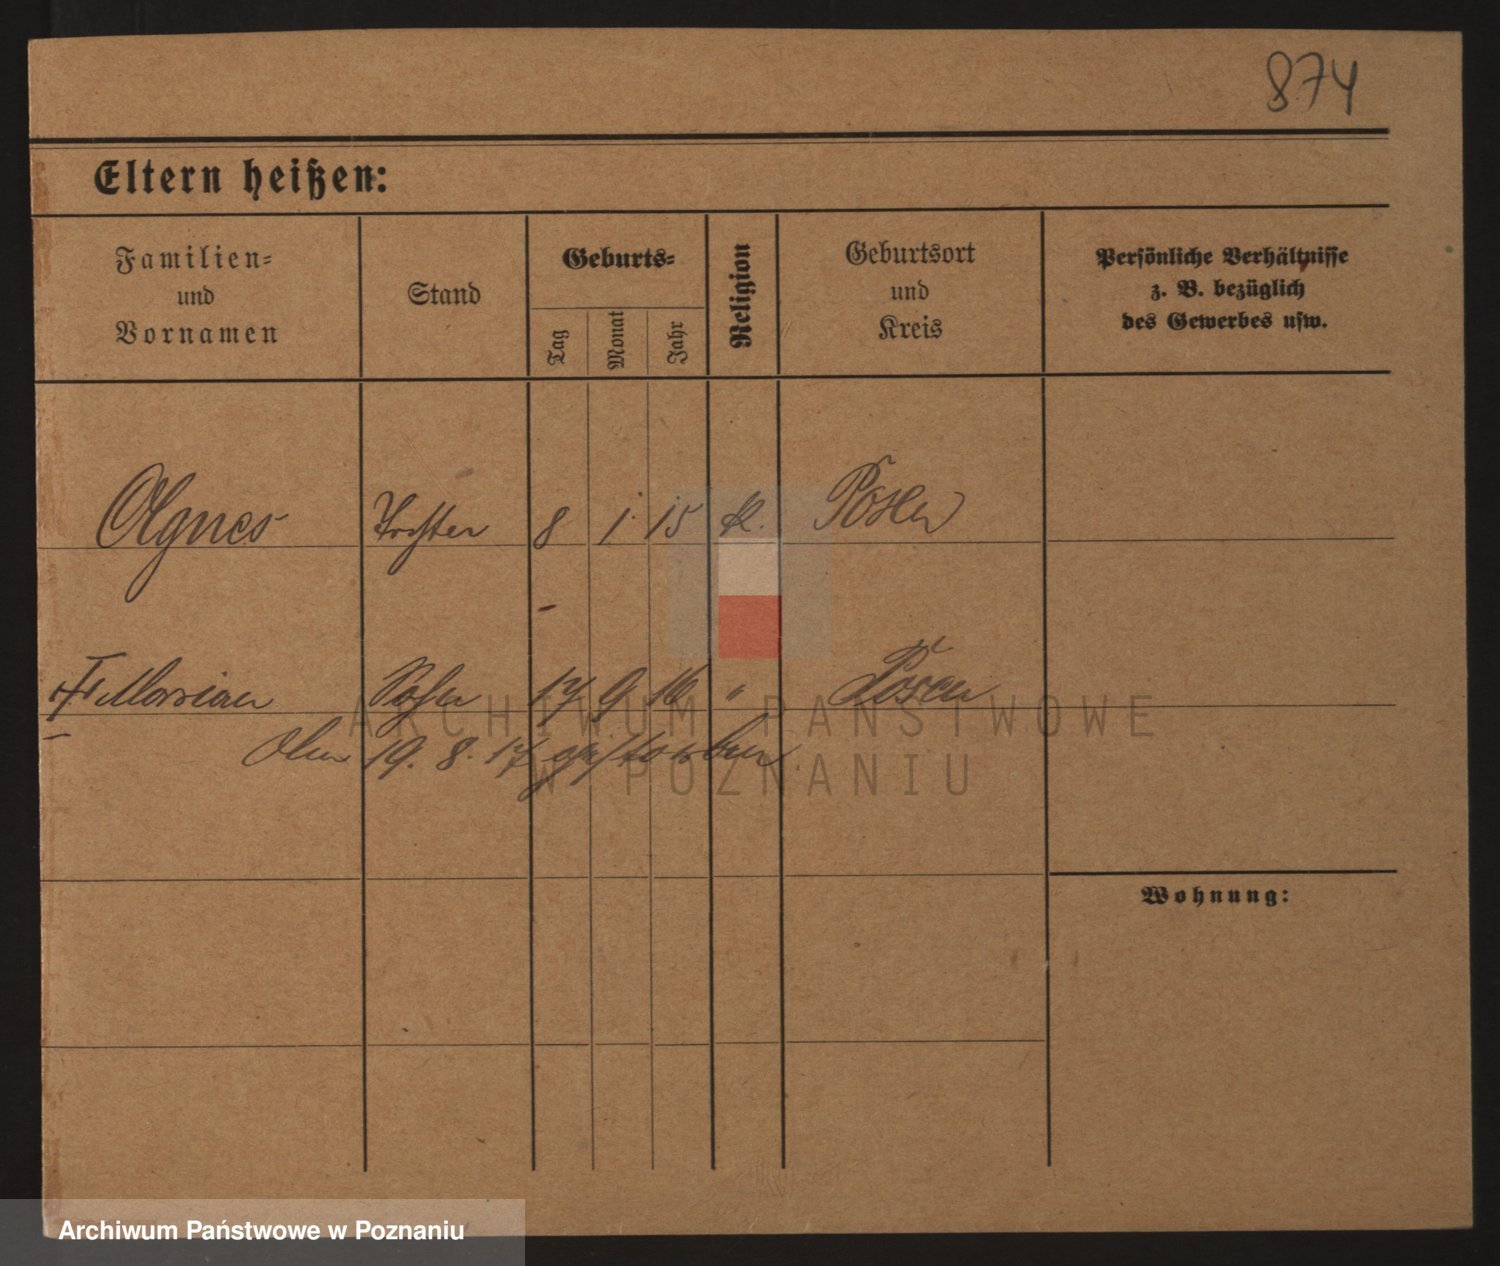 874
Eltern heißen:
Familien=
und
Vornamen
Stand
Geburts=
Tag
Monat
Jahr
Religion
Geburtsort
und
Kreis
Persönliche Verhältnisse
z. B. bezüglich
des Gewerbes usw.
Agnes Tochter 8 1. 15 k. Posen
† Marian Sohn 17 9 16 " Posen
Am 19. 8. 17 gestorben.
Wohnung:
ARCHIWUM PAŃSTWOWE
W POZNANIU
Archiwum Państwowe w Poznaniu